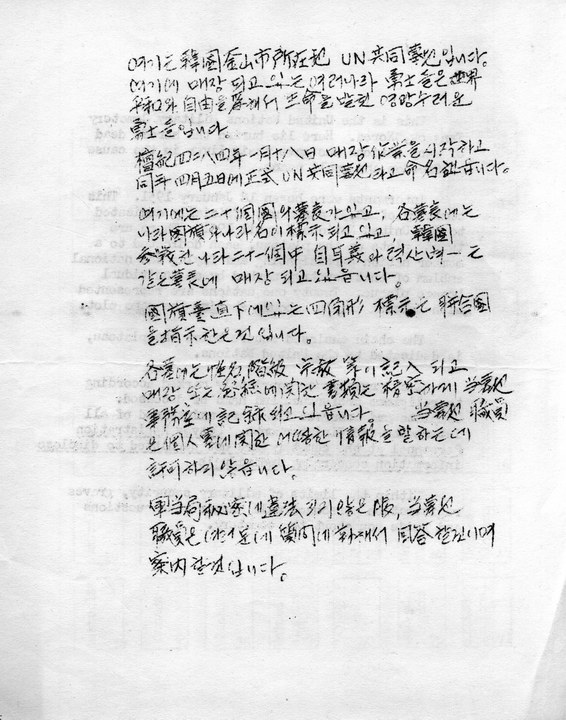 여기는 韓國釜山市所在한 UN共同墓地입니다.
여기에 매장되고 있는 여러나라 勇士들은 世界
平和와 自由를 爲해서 生命을 받친 영광스러운
勇士들입니다.
檀紀四二八四年一月十八日 매장作業을 시작하고
同年四月五日에 正式 UN共同墓地라고 命名했읍니다.
여기에는 二十個國의 墓長가 있고, 各墓長에는
나라國旗와 나라名이 標示되고 있고 韓國
参戰한 나라 二十一個中
같은 墓長에 매장되고 있읍니다.
國旗臺直下에 있는 四角形 標示은 聯合國
을 指示한 것입니다.
各墓에는 姓名, 階級, 宗敎 等이 記入되고
매장 또는 墓籍에 関한 書類는 当墓地
事務室에 記錄되고 있읍니다 当墓地 職員
은 個人墓에 関한 情報을 말하는데
許可하지 않읍니다.
軍当局 에 違法되지 않은 限, 当墓地
職員은 여러분에 質問에 対해서 回答할것이며
案内할것입니다.